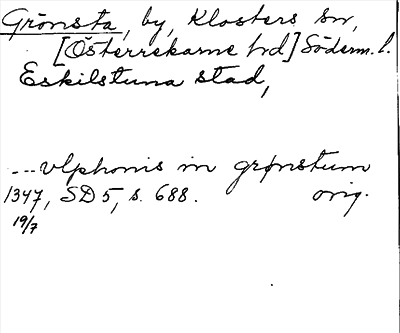 Grönsta, by, Klosters sn,
[Österrekarne hd] Söderm. l.
Eskilstuna stad,
---vlphonis in grønstum
1347, SD 5, s. 688. orig.
19/7